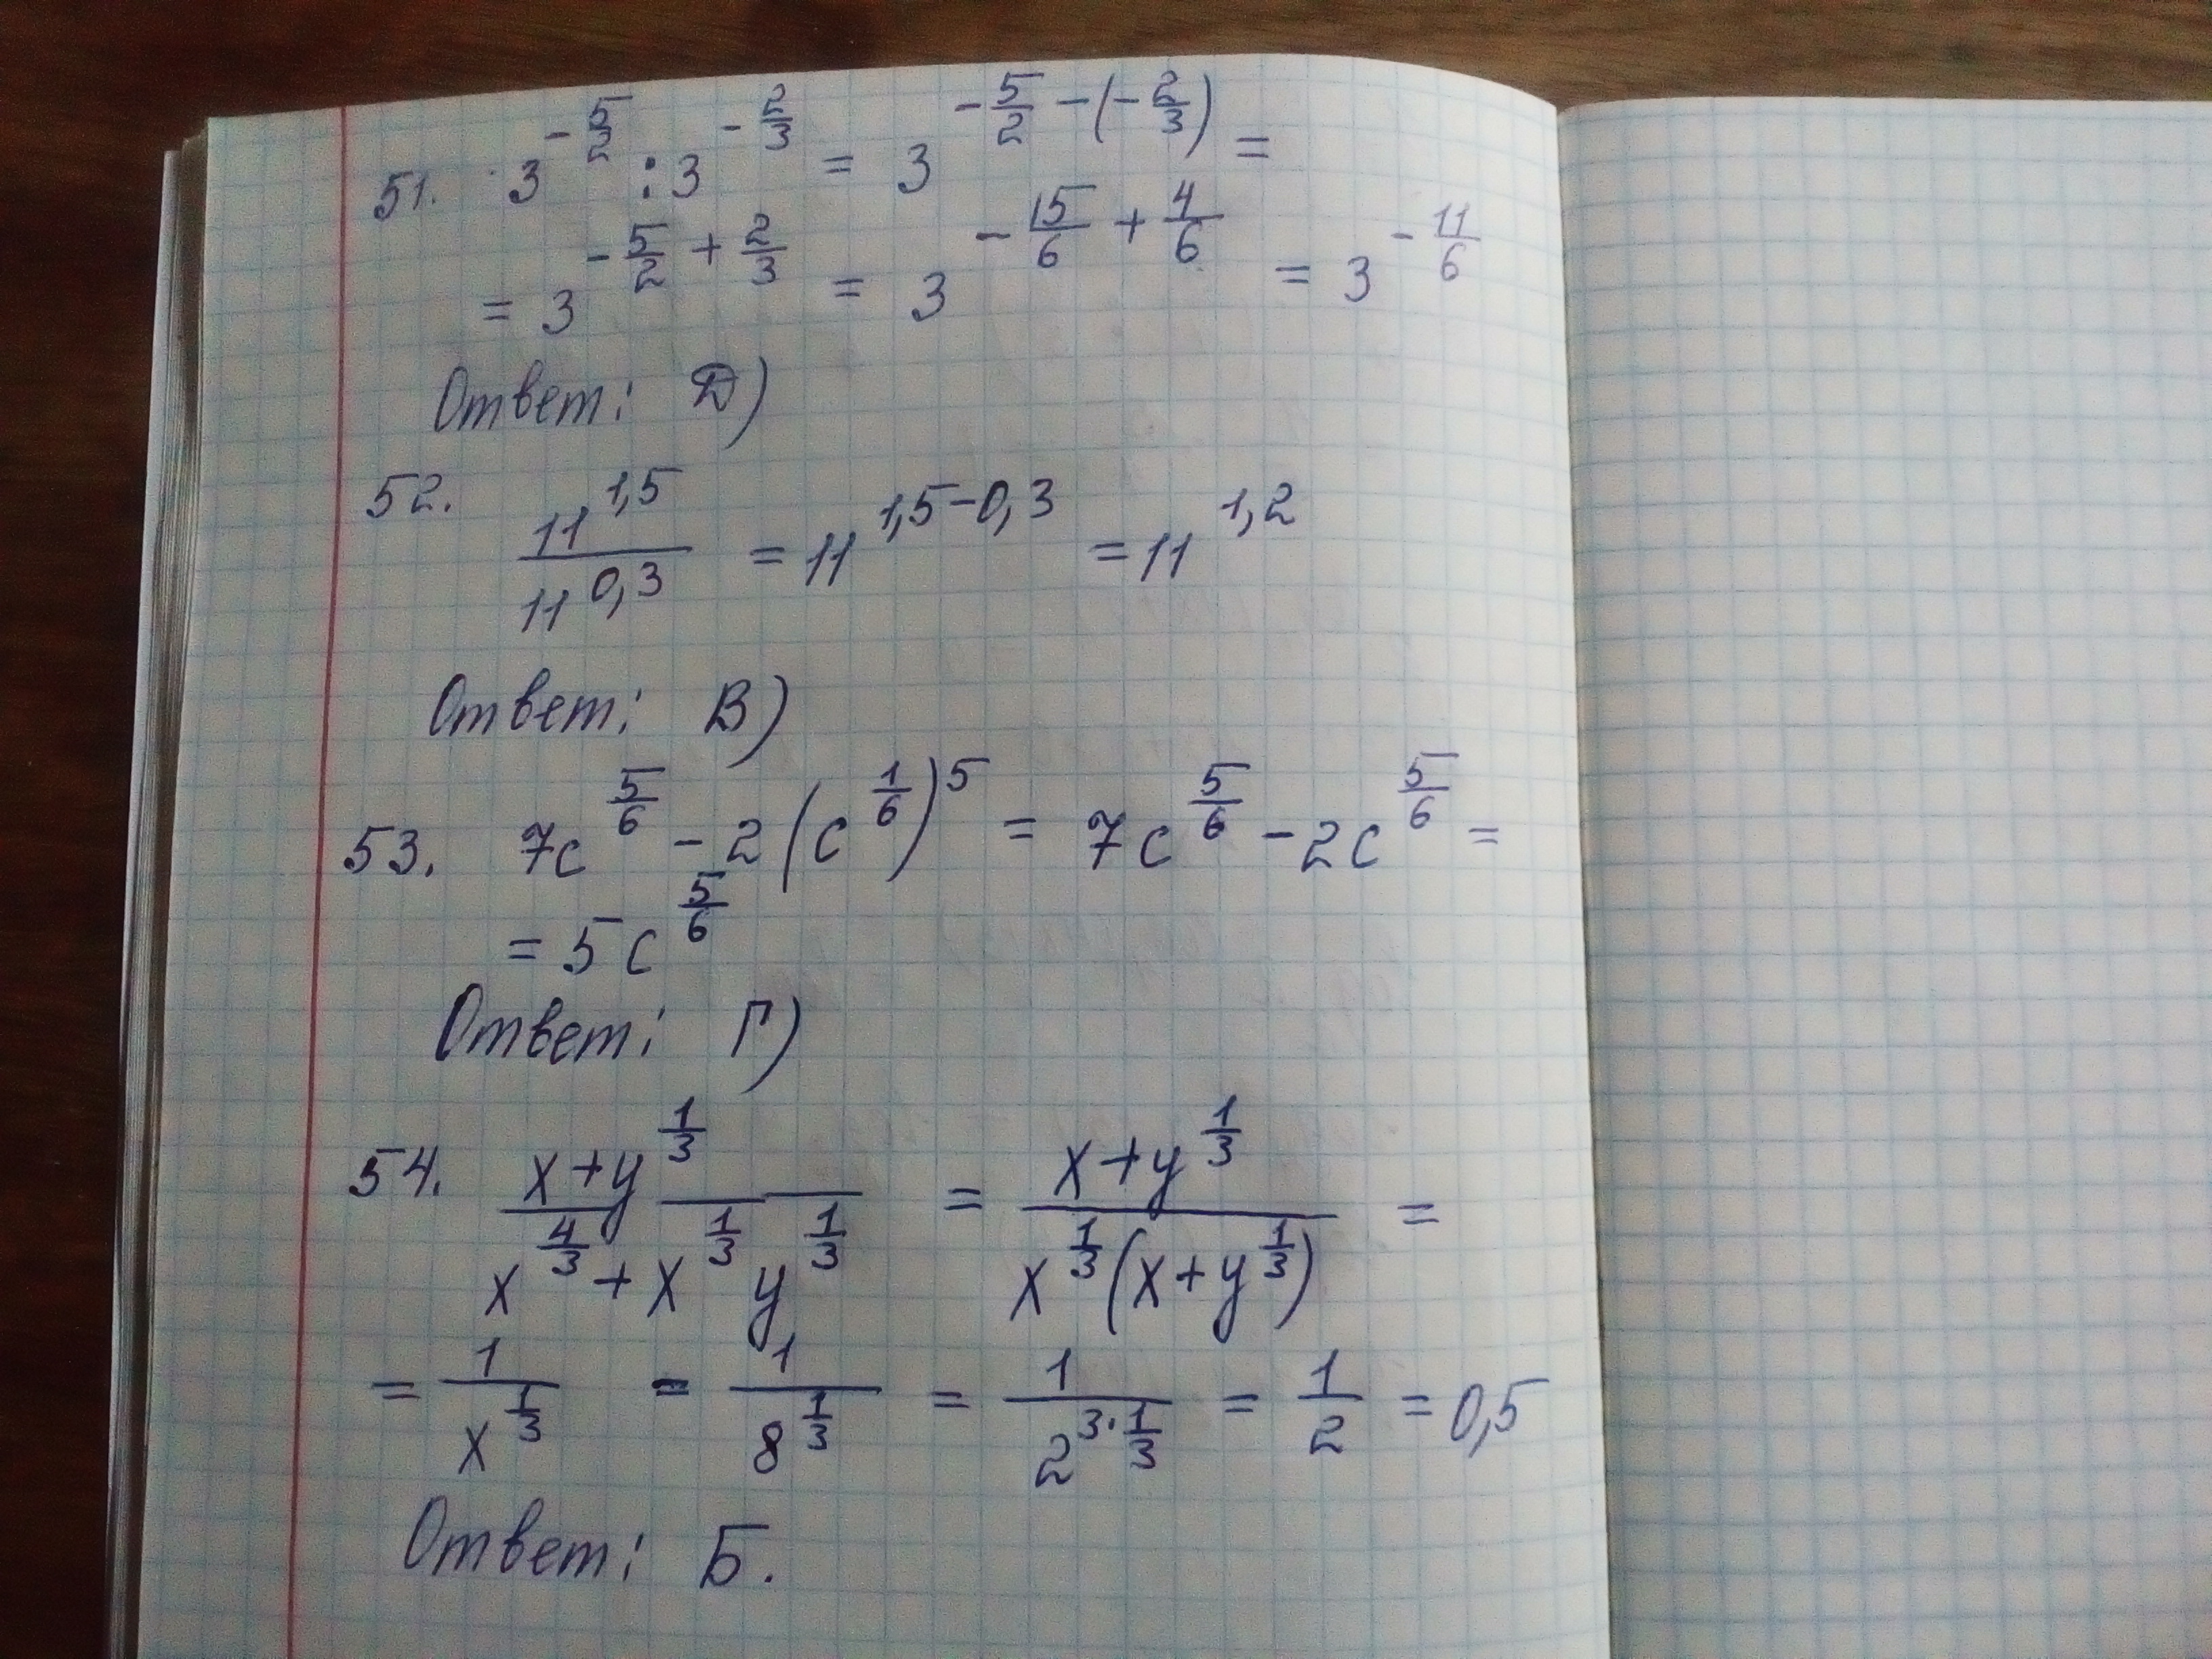 51. 3^{-\frac{5}{2}} : 3^{-\frac{2}{3}} = 3^{-\frac{5}{2}-(-\frac{2}{3})} =
= 3^{-\frac{5}{2}+\frac{2}{3}} = 3^{-\frac{15}{6}+\frac{4}{6}} = 3^{-\frac{11}{6}}
Ответ: Д)
52. \frac{11^{1,5}}{11^{0,3}} = 11^{1,5-0,3} = 11^{1,2}
Ответ: В)
53. 7c^{\frac{5}{6}} - 2(c^{\frac{1}{6}})^5 = 7c^{\frac{5}{6}} - 2c^{\frac{5}{6}} =
= 5c^{\frac{5}{6}}
Ответ: Г)
54. \frac{x+y^{\frac{1}{3}}}{x^{\frac{4}{3}}+x^{\frac{1}{3}}y^{\frac{1}{3}}} = \frac{x+y^{\frac{1}{3}}}{x^{\frac{1}{3}}(x+y^{\frac{1}{3}})} =
= \frac{1}{x^{\frac{1}{3}}} = \frac{1}{8^{\frac{1}{3}}} = \frac{1}{2^{3·\frac{1}{3}}} = \frac{1}{2} = 0,5
Ответ: Б.